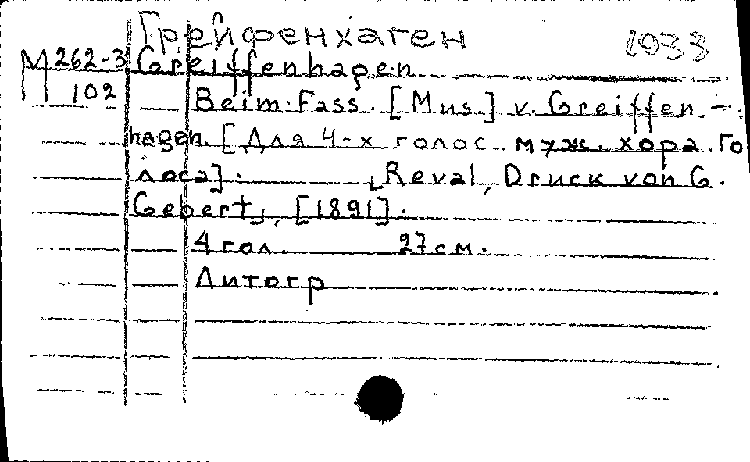 Грейфенхаген
1033
М 262-3 Greiffenhagen
102 Beim Fass. [Mus.] v. Greiffen-
hagen. [Для 4-х голос. муж. хора. Го
лоса]. [Reval, Druck von G.
Gebert], [1891].
4 гол. 27 см.
Литогр